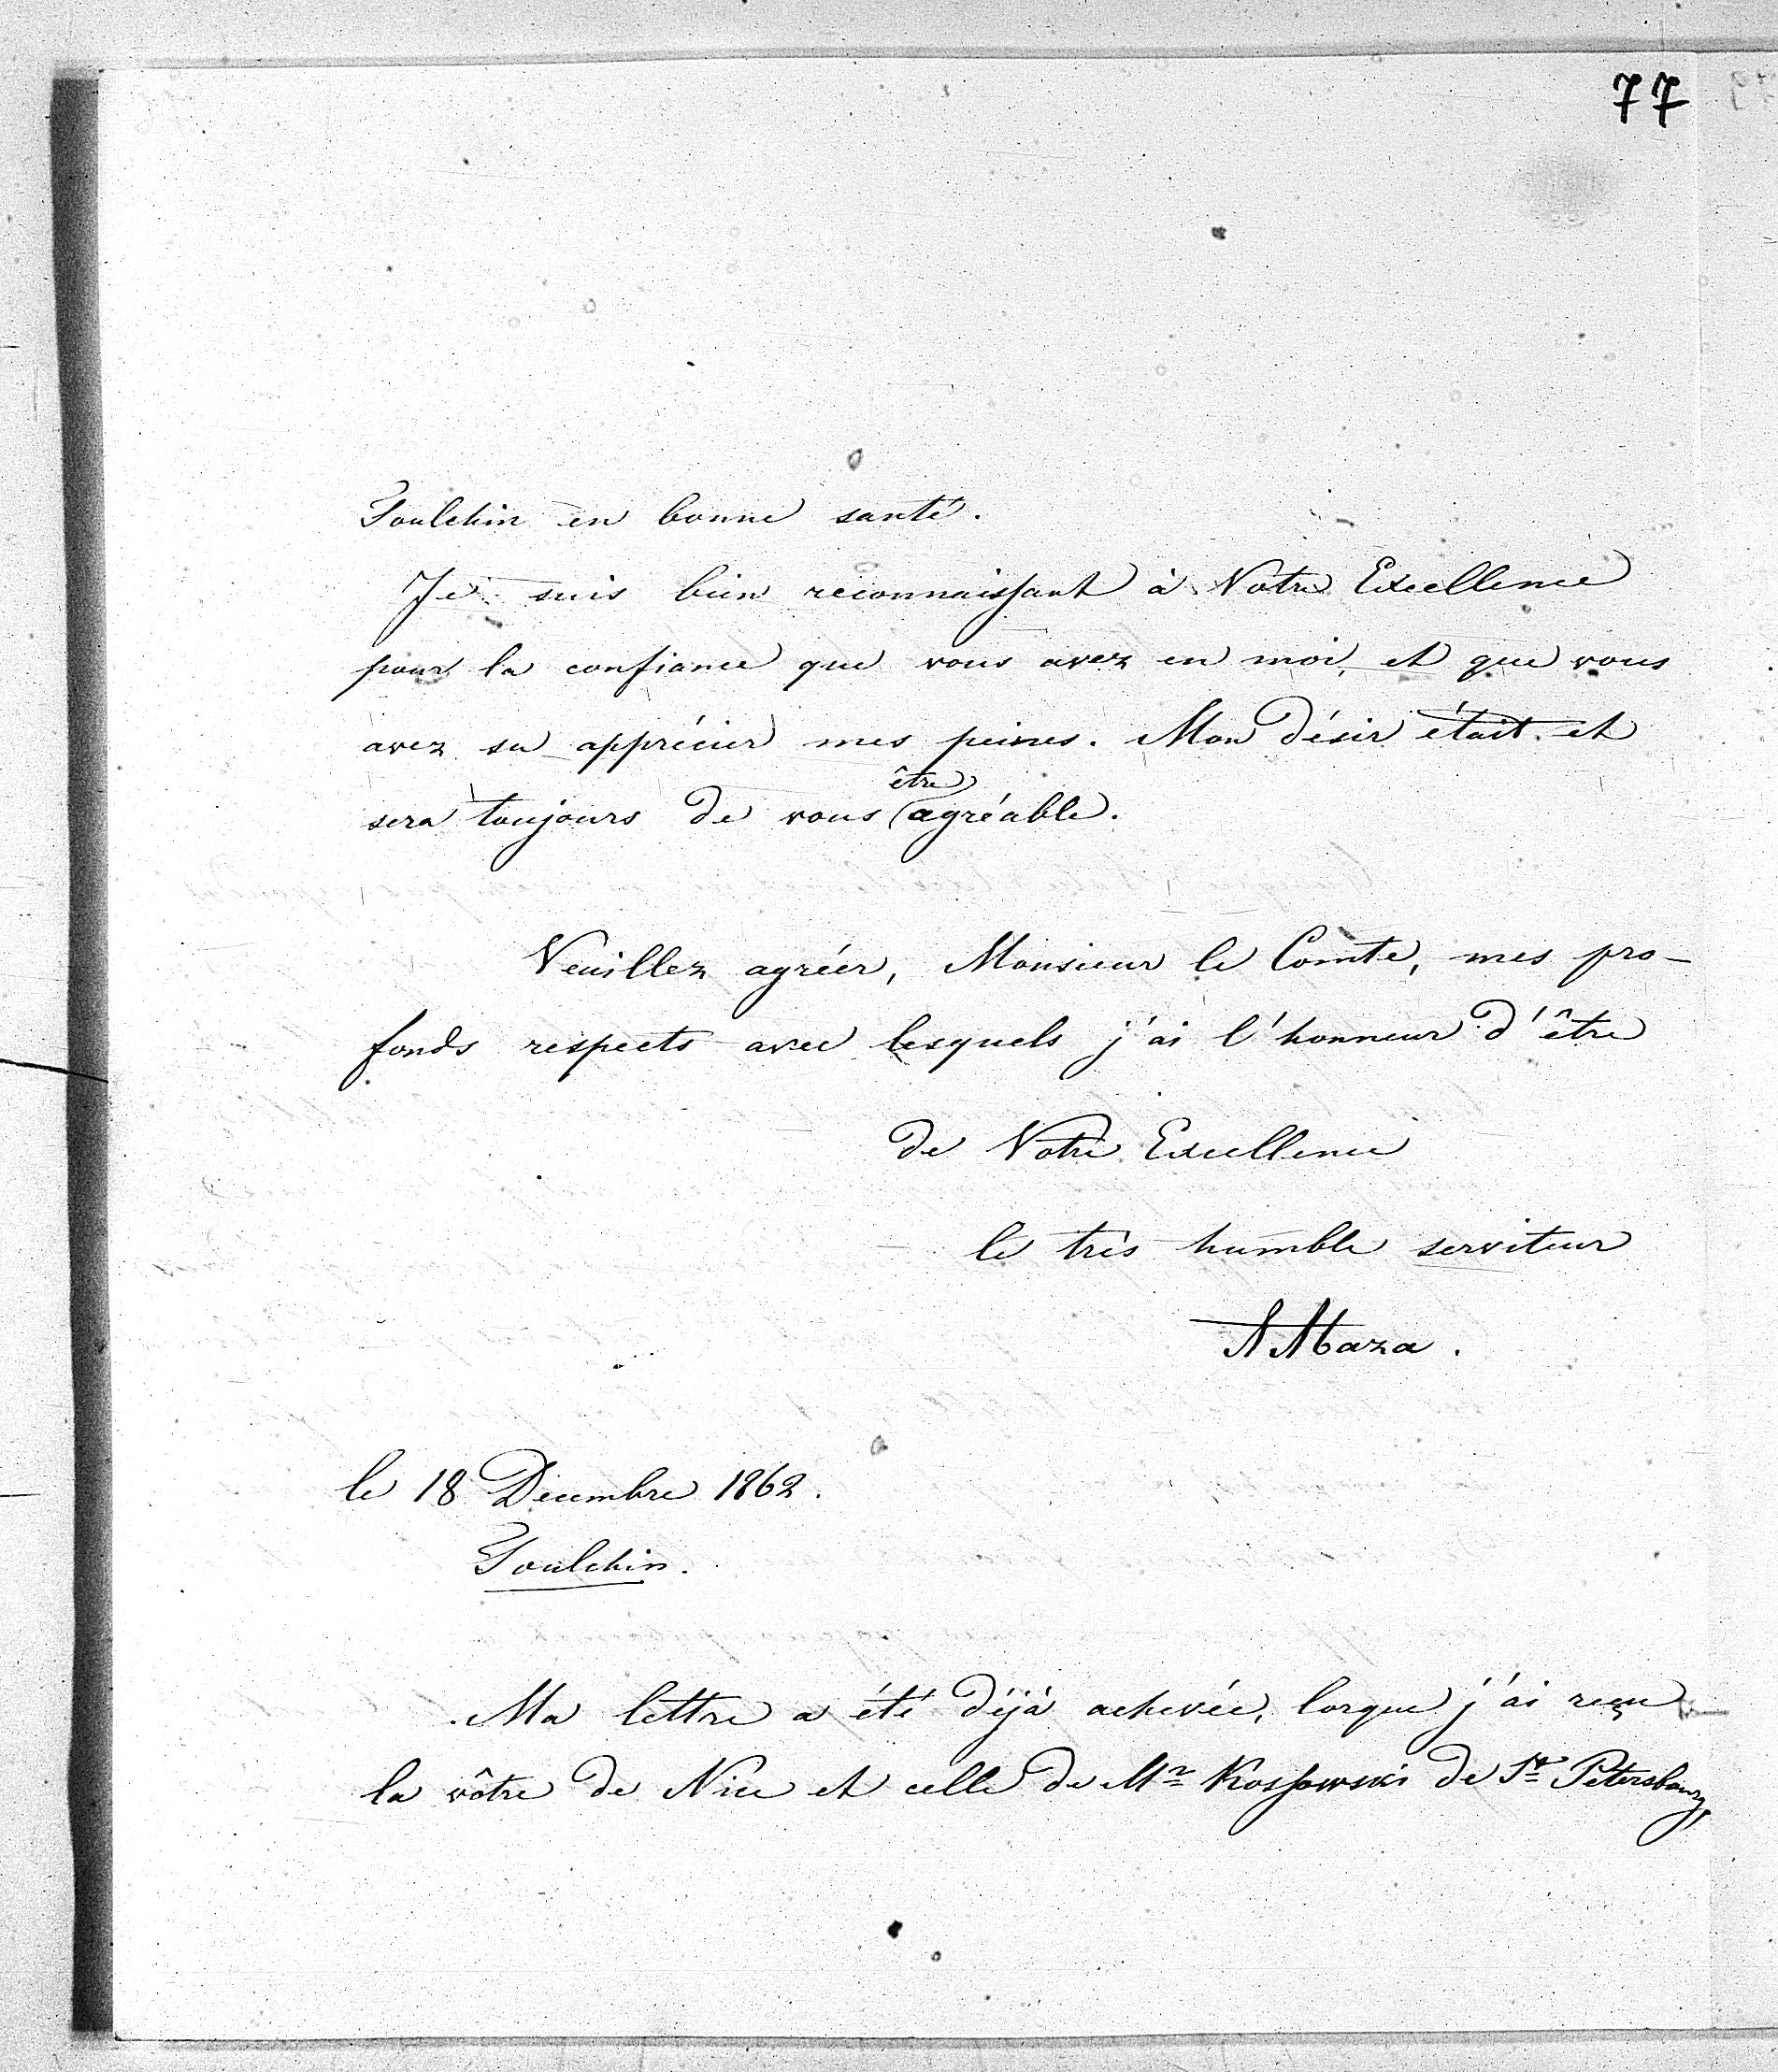 77
Toulchin en bonne santé.
Je suis bien reconnaissant à Votre Excellence
pour la confiance que vous avez en moi, et que vous
avez su apprécier mes peines. Mon désir était et
être
sera toujours de vous agréable.
Veuillez agréer, Monsieur le Comte, mes pro-
fonds respects avec lesquels j'ai l'honneur d'être
de Votre Excellence
le très humble serviteur
le 18 Decembre 1862.
Toulchin.
Ma lettre a été déjà achevée, lorque j'ai reçu
la vôtre de Nice et celle de Mr Kossowski de St Petersbourg,